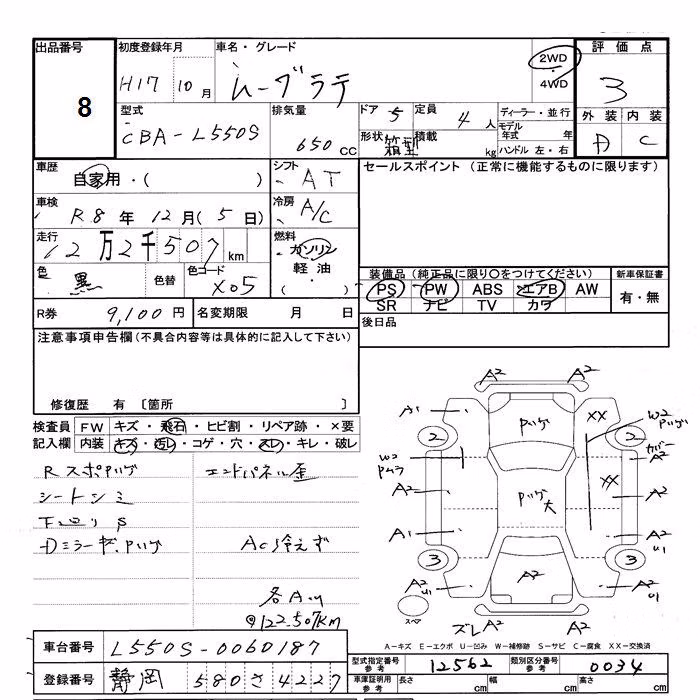 出品番号 8
初度登録年月 H17 10月
車名・グレード ムーヴラテ
2WD・4WD
評価点 3
外装 内装
D C
型式 CBA-L550S
排気量 650cc
ドア 5 定員 4人
形状 箱型 積載 kg
ディーラー・並行
モデル年式 年
ハンドル 左・右
車歴 自家用・( )
シフト AT
セールスポイント (正常に機能するものに限ります)
車検 R8年 12月(5日)
冷房 A/C
走行 12万2千507km
燃料 ガソリン 軽油・( )
色 黒 色替 色コード X05
装備品 (純正品に限り○をつけてください)
新車保証書 有・無
PS PW ABS エアB AW
SR ナビ TV カワ
R券 9,100円 名変期限 月 日
後日品
注意事項申告欄(不具合内容等は具体的に記入して下さい)
修復歴 有 〔箇所 〕
検査員記入欄
FW キズ・飛石・ヒビ割・リペア跡・×要
内装 キズ・汚レ・コゲ・穴・スレ・キレ・破レ
RスポPハゲ エンドパネル歪
シートシミ
下廻りS
Dミラーキズ.Pハゲ ACS冷えず
@122.507KM
A2 A2
A1 Pハゲ XX W2 Pハゲ
2 2 カバー
W2 Pムラ A2
A2 Pハゲ大 XX A2
A1 A2 U1
3 3
A2 U1 A2 A2 U1
スペア
ズレA2 A2
A－キズ E－エクボ U－凹み W－補修跡 S－サビ C－腐食 XX－交換済
車台番号 L550S-0060187
登録番号 静岡 580さ4227
型式指定番号参考 12562 類別区分番号参考 0034
車庫証明用参考 長さ cm 幅 cm 高さ cm